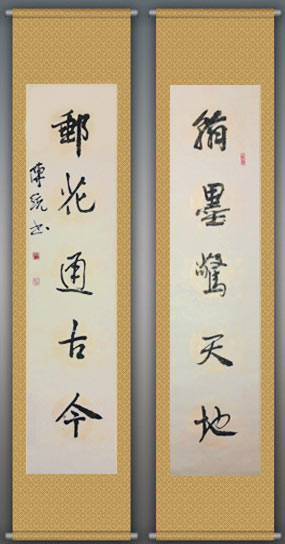 翰墨驚天地
郵花通古今
书